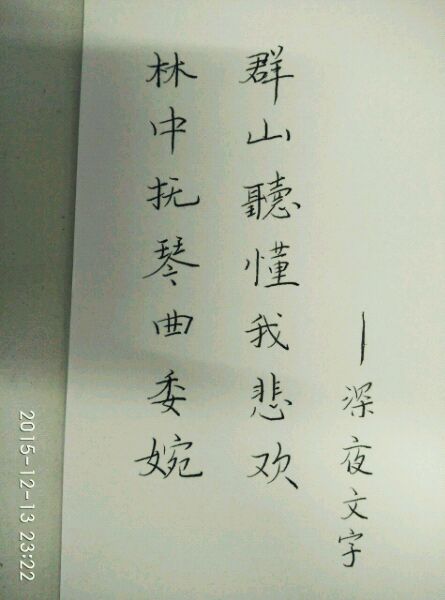 林中抚琴曲委婉
群山聽懂我悲欢
—深夜文字
2015-12-13 23:22